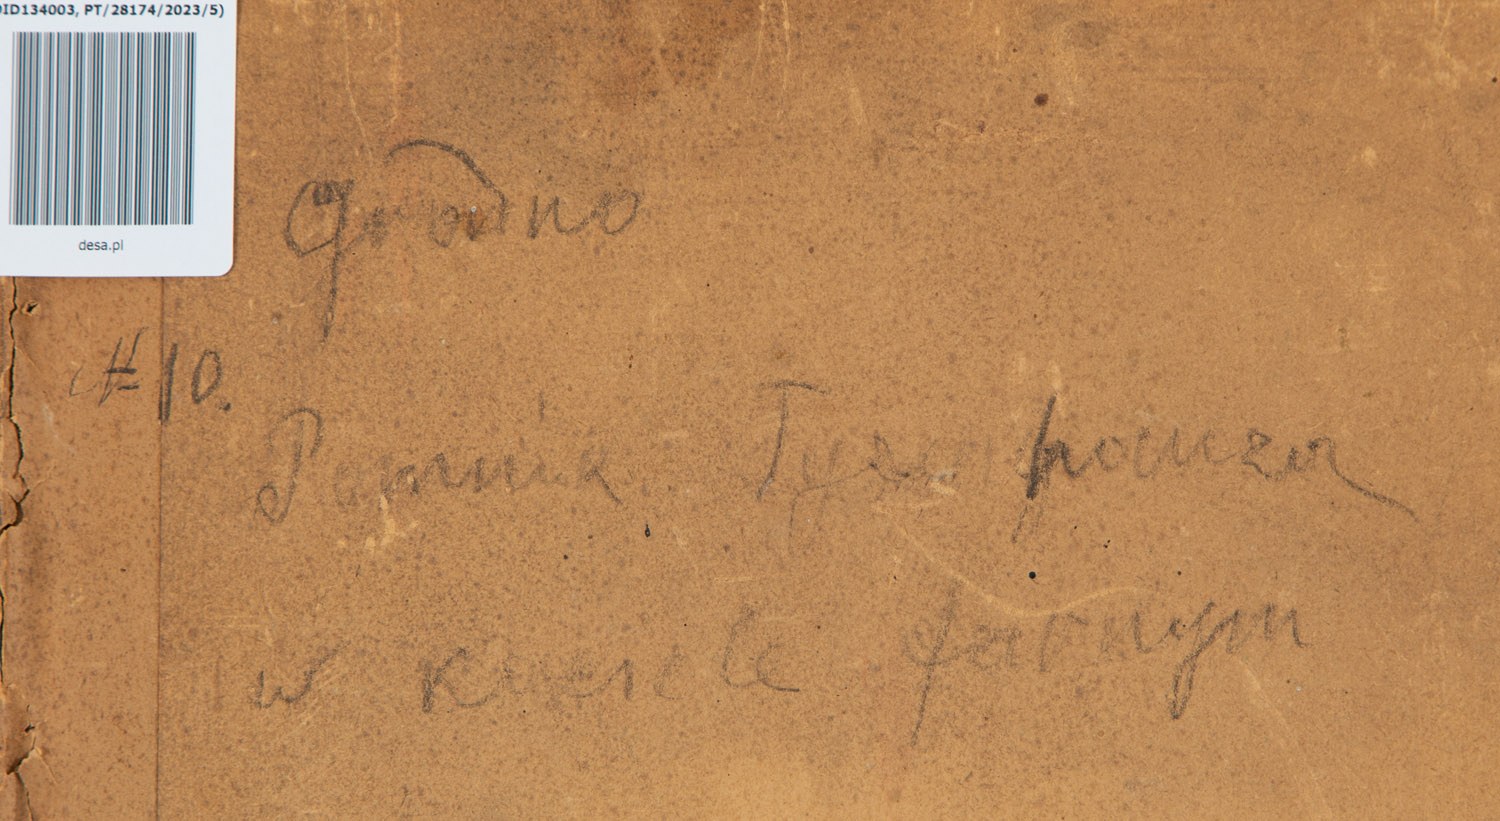 DID134003, PT/28174/2023/5)
desa.pl
Grodno
#10.
Pomnik Tyzenhauza
w kościele farnym